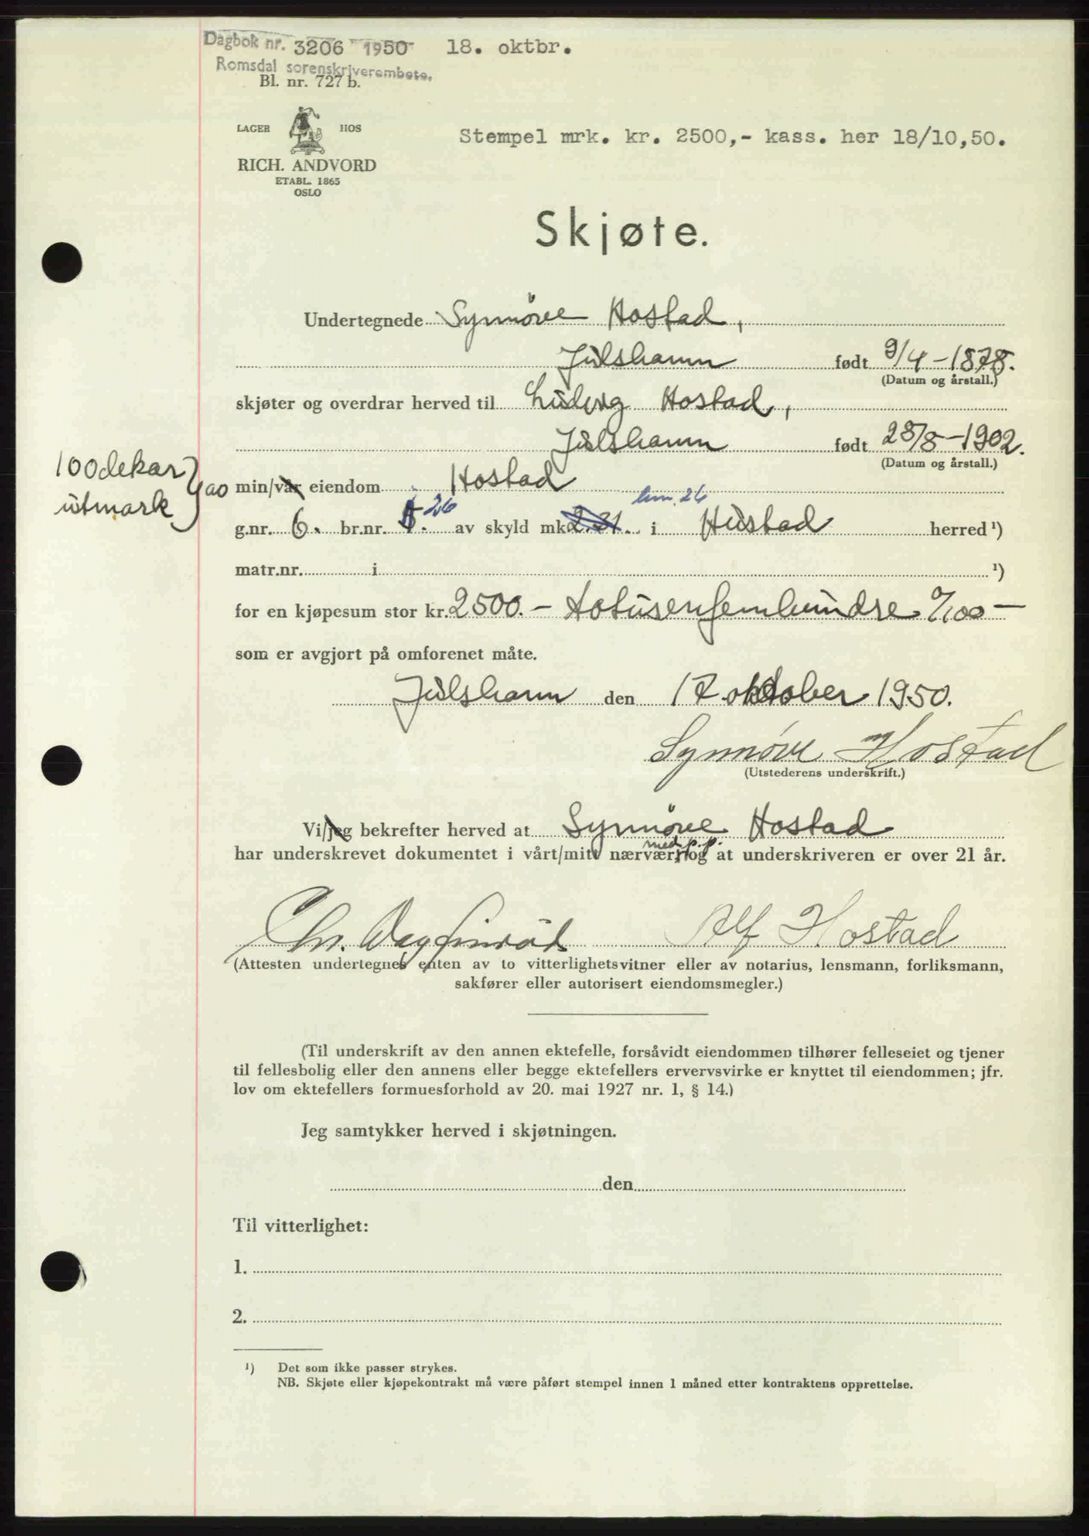 Dagbok nr. 3206 1950 18. oktbr.
Romsdal sorenskriverembete.
Bl. nr. 727 b.
LAGER HOS
Stempel mrk. kr. 2500,- kass. her 18/10,50.
RICH. ANDVORD
ETABL. 1865
OSLO
Skjøte.
Undertegnede Synnøve Hostad,
Julshamn født 9/4-1878.
(Datum og årstall.)
skjøter og overdrar herved til Ludvig Hostad,
Julshamn født 28/8-1902.
(Datum og årstall.)
100 dekar
utmark
av min/vår eiendom Hostad
26 26
g.nr. 6. br.nr. av skyld mk. 2.31. i Hustad herred ¹)
matr.nr. i ¹)
for en kjøpesum stor kr. 2500.- totusenfemhundre 0/100 -
som er avgjort på omforenet måte.
Julshamn den 17. oktober 1950.
Synnøve Hostad
(Utstederens underskrift.)
Vi/jeg bekrefter herved at Synnøve Hostad
med p.p.
har underskrevet dokumentet i vårt/mitt nærvær, og at underskriveren er over 21 år.
Alf Hostad
(Attesten undertegnes enten av to vitterlighetsvitner eller av notarius, lensmann, forliksmann,
sakfører eller autorisert eiendomsmegler.)
(Til underskrift av den annen ektefelle, forsåvidt eiendommen tilhører felleseiet og tjener
til fellesbolig eller den annens eller begge ektefellers ervervsvirke er knyttet til eiendommen; jfr.
lov om ektefellers formuesforhold av 20. mai 1927 nr. 1, § 14.)
Jeg samtykker herved i skjøtningen.
den
Til vitterlighet:
1.
2.
¹) Det som ikke passer strykes.
NB. Skjøte eller kjøpekontrakt må være påført stempel innen 1 måned etter kontraktens opprettelse.